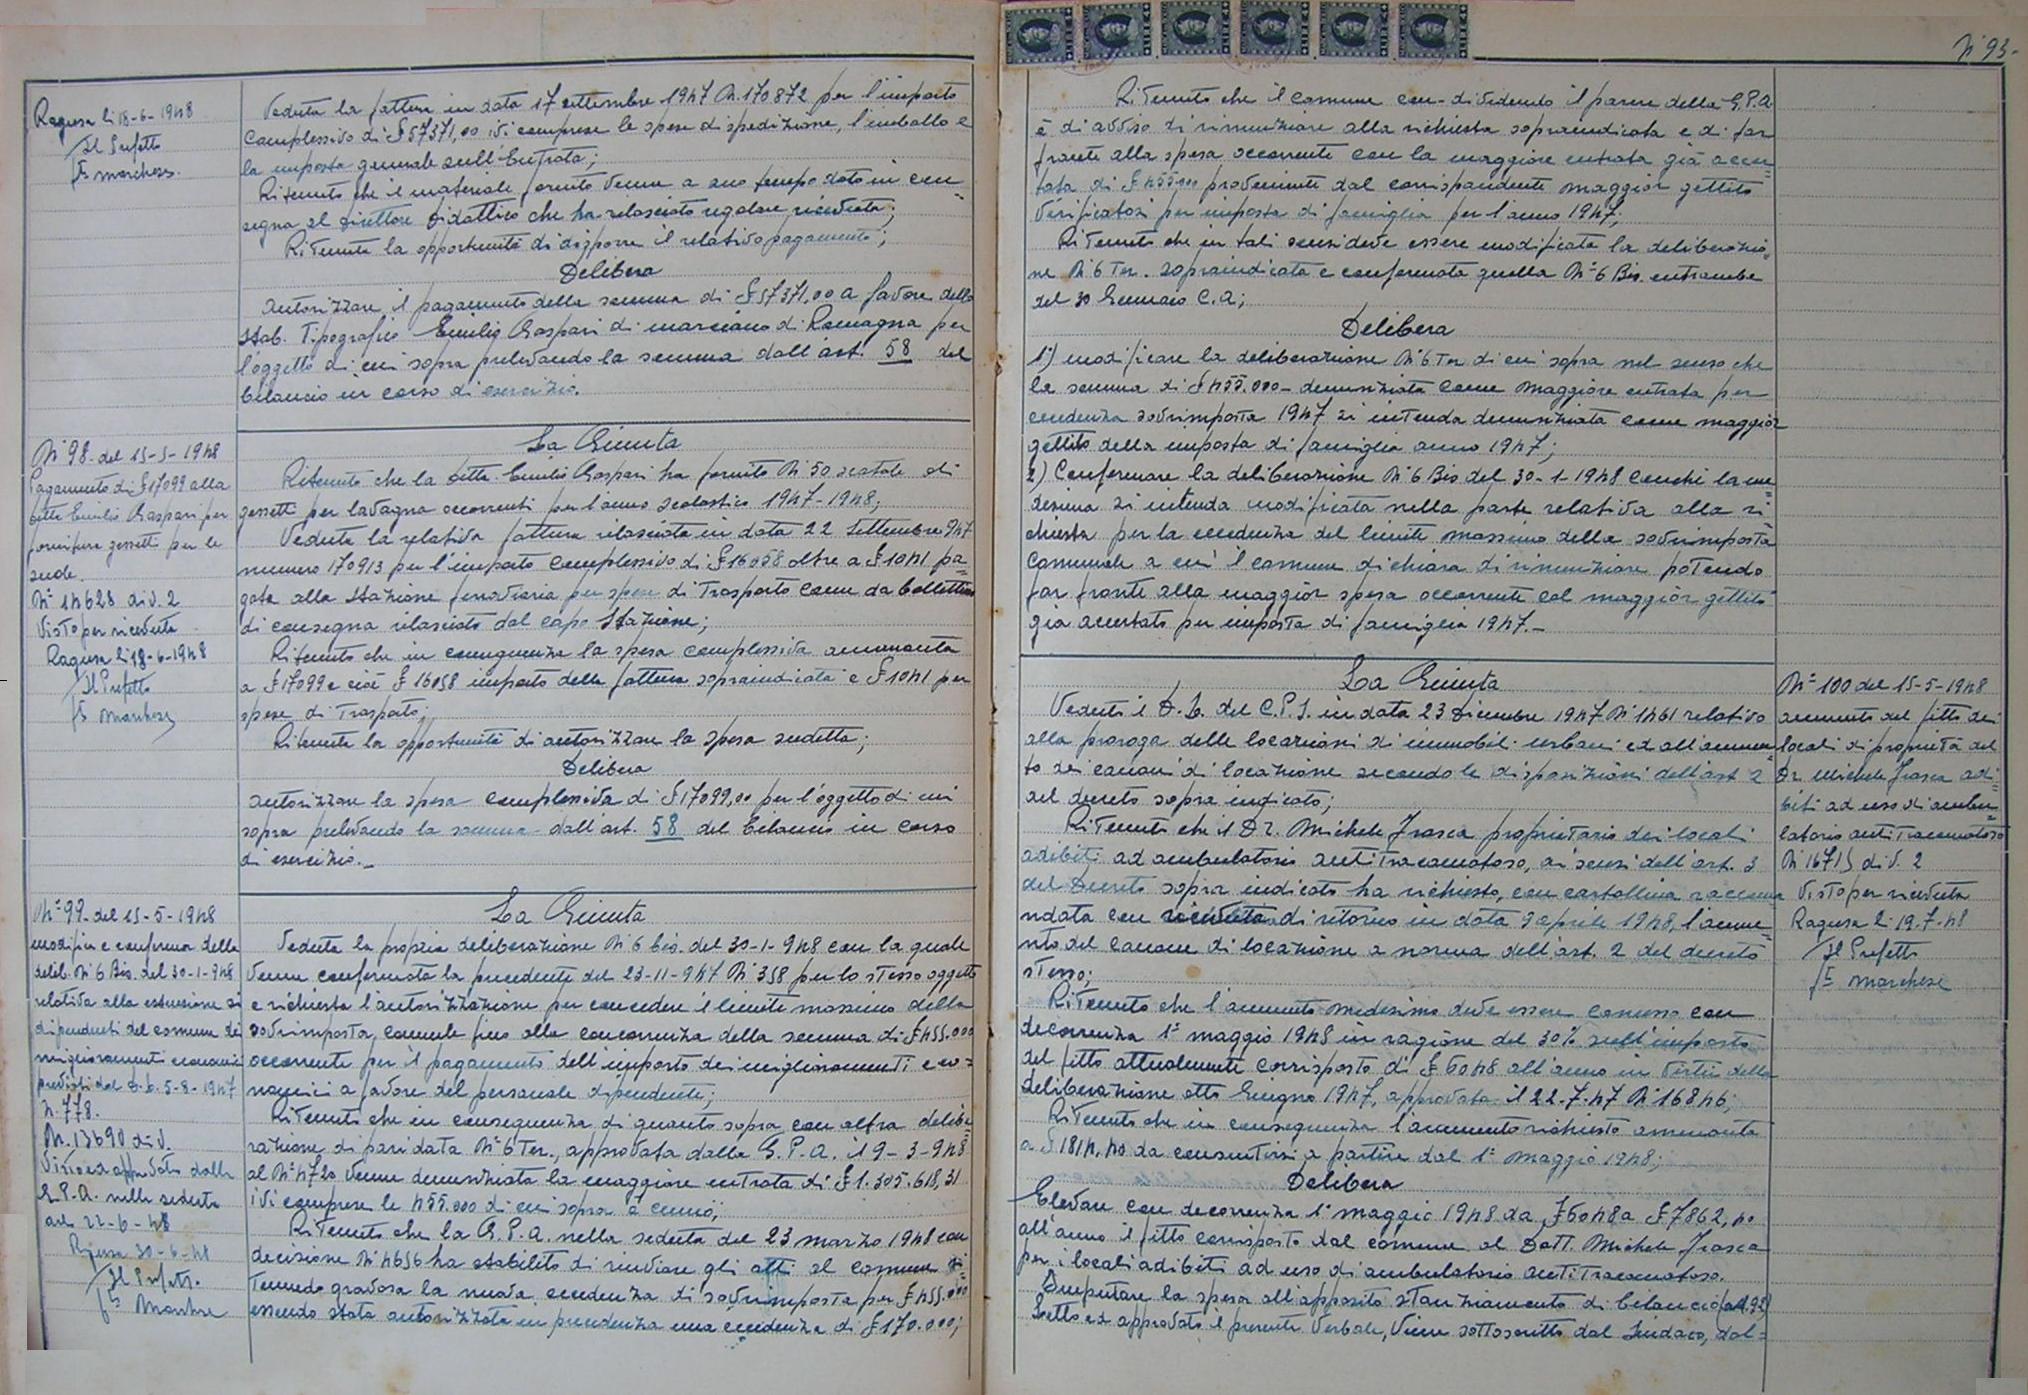 Ragusa li 18-6-1948
Il Prefetto
Fto Marchese
Veduta la fattura in data 17 settembre 1947 N. 170872 per l'importo
complessivo di £ 57371,00 ivi comprese le spese di spedizione, l'imballo e
la imposta generale sull'Entrata;
Ritenuto che il materiale fornito venne a suo tempo dato in con=
segna al Direttore Didattico che ha rilasciato regolare ricevuta;
Ritenuta la opportunità di disporre il relativo pagamento;
Delibera
autorizzare il pagamento della somma di £ 57371,00 a favore dello
Stab. Tipografico Emilio Gaspari di Marciano di Romagna per
l'oggetto di cui sopra prelevando la somma dall'art. 58 del
bilancio in corso di esercizio.
N° 98 del 15-5-1948
Pagamento di £ 17099 alla
Ditta Emilio Gaspari per
fornitura gessetti per le
scuole.
N° 14628 div. 2
Visto per ricevuta
Ragusa li 18-6-1948
Il Prefetto
Fto Marchese
La Giunta
Ritenuto che la Ditta Emilio Gaspari ha fornito N° 50 scatole di
gessetti per lavagna occorrenti per l'anno scolastico 1947-1948;
Veduta la relativa fattura rilasciata in data 22 Settembre 947
numero 170913 per l'importo complessivo di £ 16058 oltre a £ 1041 pa=
gate alla Stazione ferroviaria per spese di Trasporto come da bollettino
di consegna rilasciato dal capo Stazione;
Ritenuto che in conseguenza la spesa complessiva ammonta
a £ 17099 e cioè £ 16058 importo della fattura sopraindicata e £ 1041 per
spese di Trasporto;
Ritenuta la opportunità di autorizzare la spesa sudetta;
Delibera
autorizzare la spesa complessiva di £ 17099,00 per l'oggetto di cui
sopra prelevando la somma dall'art. 58 del bilancio in corso
di esercizio._
N° 99 del 15-5-1948
modifica e conferma della
delib. N° 6 Bis. del 30-1-948
relativa alla estensione ai
dipendenti del comune dei
miglioramenti economici
previsti dal 5-8-1947
N. 778.
N. 13690 div.
Visto ed approvato dalla
G.P.A. nella seduta
del 22-6-48
Ragusa 30-6-48
Il Prefetto
Fto Marchese
La Giunta
Veduta la propria deliberazione N° 6 bis. del 30-1-948 con la quale
venne confermata la precedente del 23-11-947 N° 358 per lo stesso oggetto
e richiesta l'autorizzazione per eccedere il limite massimo della
sovrimposta comunale fino alla concorrenza della somma di £ 455.000
occorrente per il pagamento dell'importo dei miglioramenti eco=
nomici a favore del personale dipendente;
Ritenuto che in conseguenza di quanto sopra con altra delibe=
razione di pari data N° 6 Ter., approvata dalla G.P.A. il 9-3-948
al N° 4720 venne denunziata la maggiore entrata di £ 1.305.618,31
ivi comprese le 455.000 di cui sopra è cenno;
Ritenuto che la G.P.A. nella seduta del 23 marzo 1948 con
decisione N° 4656 ha stabilito di rinviare gli atti al comune ri=
tenendo gravosa la nuova eccedenza di sovrimposta per £ 455.000
essendo stata autorizzata in precedenza una eccedenza di £ 170.000;
N° 93-
Ritenuto che il comune con-dividendo il parere della G.P.A.
è di avviso di rinunziare alla richiesta sopraindicata e di far
fronte alla spesa occorrente con la maggiore entrata già accer=
tata di £ 455.000 proveniente dal corrispondente maggior gettito
verificatosi per imposta di famiglia per l'anno 1947;
Ritenuto che in tali sensi deve essere modificata la deliberazio=
ne N° 6 Ter. sopraindicata e confermata quella N° 6 Bis. entrambe
del 30 Gennaio C.A;
Delibera
1°) modificare la deliberazione N° 6 Ter di cui sopra nel senso che
la somma di £ 455.000- denunziata come maggiore entrata per
eccedenza sovrimposta 1947 si intenda denunziata come maggior
gettito della imposta di famiglia anno 1947;
2) Confermare la deliberazione N° 6 Bis del 30-1-1948 benchè la me=
desima si intenda modificata nella parte relativa alla ri=
chiesta per la eccedenza del limite massimo della sovrimposta
comunale a cui il comune dichiara di rinunziare potendo
far fronte alla maggior spesa occorrente col maggior gettito
già accertato per imposta di famiglia 1947._
La Giunta
Veduto il D.L. del C.P.S. in data 23 Dicembre 1947 N° 1461 relativo
alla proroga delle locazioni di immobili urbani ed all'aumen=
to dei canoni di locazione secondo le disposizioni dell'art 2
del decreto sopra indicato;
Ritenuto che il Dr. Michele Frasca proprietario dei locali
adibiti ad ambulatorio antitracomatoso, ai sensi dell'art. 3
del Decreto sopra indicato ha richiesto, con cartollina raccoma
ndata con ricevuta di ritorno in data 9 aprile 1948, l'aume=
nto del canone di locazione a norma dell'art. 2 del decreto
stesso;
Ritenuto che l'aumento medesimo deve essere concesso con
decorrenza 1° maggio 1948 in ragione del 30% sull'importo
del fitto attualmente corrisposto di £ 6048 all'anno in virtù della
deliberazione otto Giugno 1947, approvata il 22-7-47 N° 16846;
Ritenuto che in conseguenza l'aumento richiesto ammonta
a £ 1814,40 da consentirsi a partire dal 1° maggio 1948;
Delibera
Elevare con decorrenza 1° maggio 1948 da £ 6048 a £ 7862,40
all'anno il fitto corrisposto dal comune al Dott. Michele Frasca
per i locali adibiti ad uso di ambulatorio antitracomatoso.
Imputare la spesa all'apposito stanziamento di bilancio (art. 92)
Letto ed approvato il presente verbale, viene sottoscritto dal Sindaco, dal=
N° 100 del 15-5-1948
aumento del fitto dei
locali di proprietà del
Dr. Michele Frasca adi=
biti ad uso di ambu=
latorio antitracomatoso
N° 16715 div. 2
Visto per ricevuta
Ragusa li 19-7-48
Il Prefetto
Fto Marchese